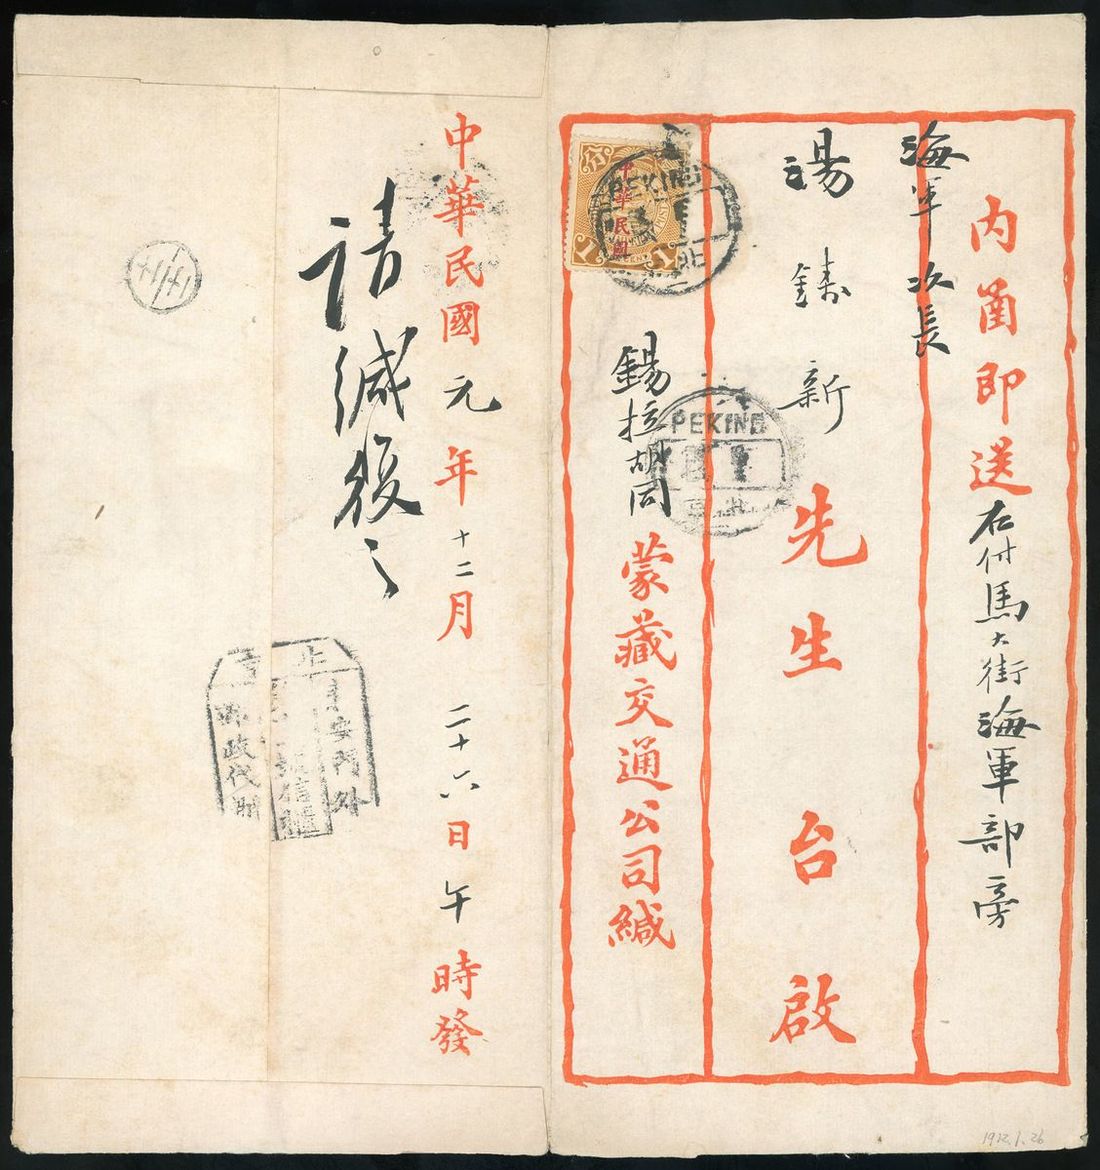 內函即送右付馬大街海軍部旁
海軍次長
湯鑄新先生台啟
錫拉胡同蒙藏交通公司緘
中華民國
分
1 1
CENT
PEKING
PEKING
中華民國元年十二月二十六日午時發
請緘復之
安門外
信櫃
郵政代辦
1912.1.26